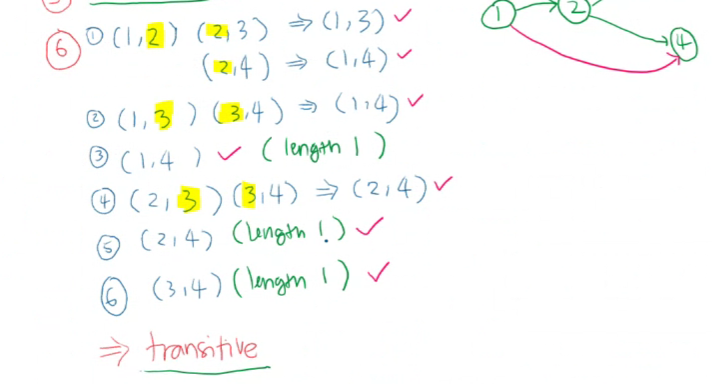 ⑥ ① (1,2) (2,3) ⇒ (1,3) ✓
(2,4) ⇒ (1,4) ✓
② (1,3) (3,4) ⇒ (1,4) ✓
③ (1,4) ✓ (length 1)
④ (2,3) (3,4) ⇒ (2,4) ✓
⑤ (2,4) (length 1) ✓
⑥ (3,4) (length 1) ✓
⇒ transitive
1 2
4